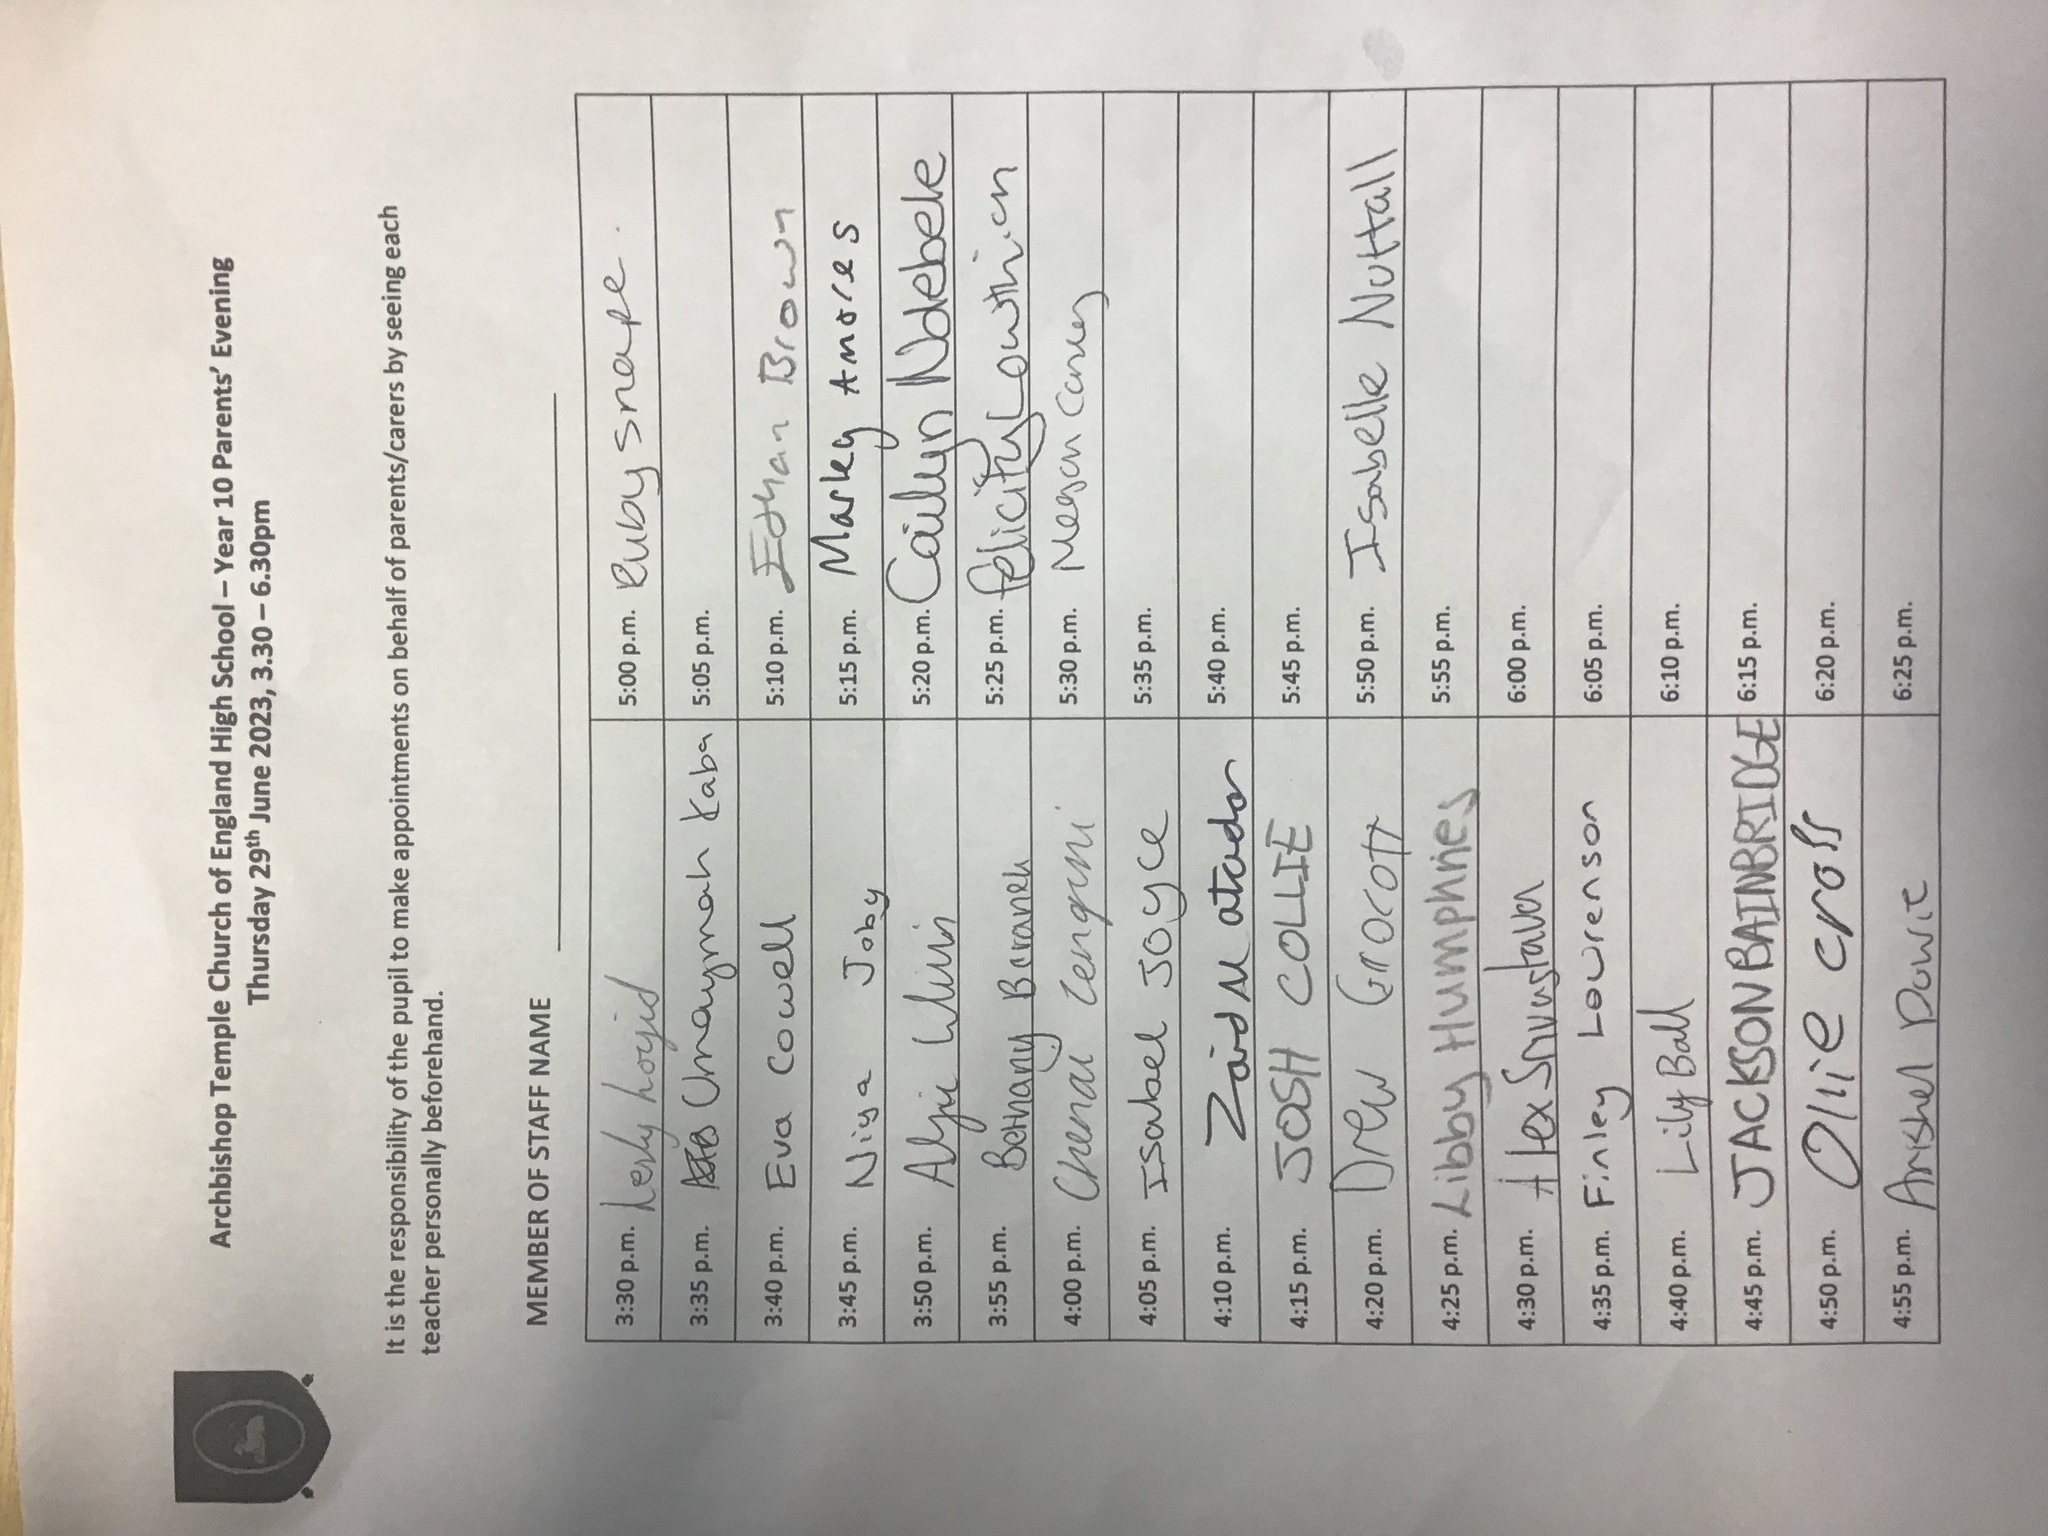 Archbishop Temple Church of England High School – Year 10 Parents' Evening
Thursday 29th June 2023, 3.30 – 6.30pm
It is the responsibility of the pupil to make appointments on behalf of parents/carers by seeing each
teacher personally beforehand.
MEMBER OF STAFF NAME
3:30 p.m.
3:35 p.m. Umaymah Kaba
3:40 p.m. Eva Cowell
3:45 p.m. Niya Joby
3:50 p.m.
3:55 p.m. Bethany Baranek
4:00 p.m. Chenai
4:05 p.m. Isabel Joyce
4:10 p.m. Zaid
4:15 p.m. JOSH COLLIE
4:20 p.m. Drew Grocott
4:25 p.m. Libby Humphries
4:30 p.m. Alex
4:35 p.m. Finley Lowrenson
4:40 p.m. Lily Ball
4:45 p.m. JACKSON BAINBRIDGE
4:50 p.m. Ollie cross
4:55 p.m.
5:00 p.m. Ruby snape.
5:05 p.m.
5:10 p.m. Ethan Brown
5:15 p.m. Marley Amores
5:20 p.m. Caitlyn Ndebele
5:25 p.m. felicity Lowthian
5:30 p.m. Megan
5:35 p.m.
5:40 p.m.
5:45 p.m.
5:50 p.m. Isabelle Nuttall
5:55 p.m.
6:00 p.m.
6:05 p.m.
6:10 p.m.
6:15 p.m.
6:20 p.m.
6:25 p.m.